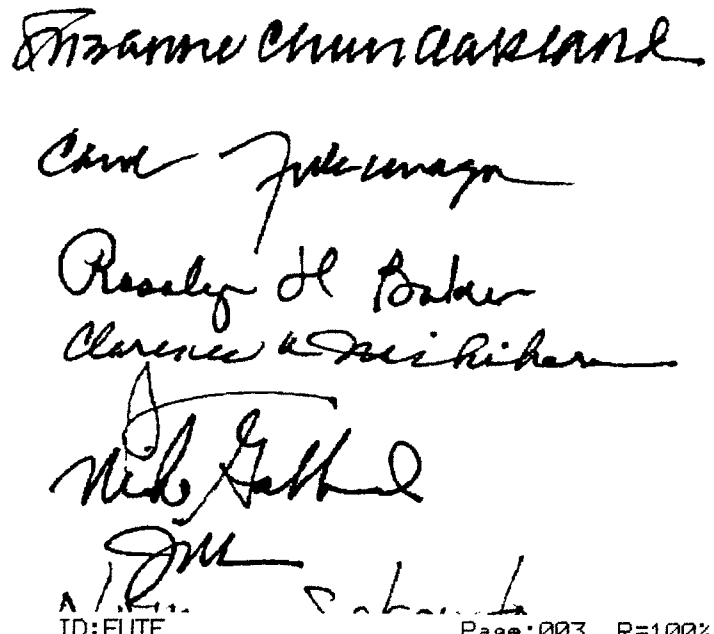 Suzanne Chun Oakland
Carol Fukunaga
Rosalyn H Baker
Clarence K Nishihara
Mike Gabbard
ID:FUTE Page:003 R=100%